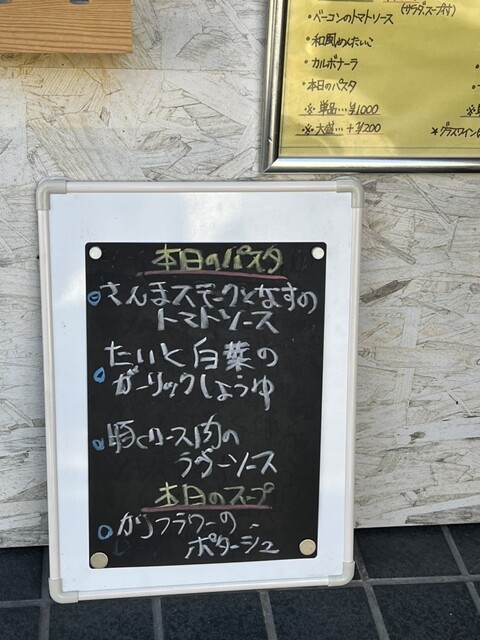 (サラダ、スープ付)
・ベーコンのトマトソース
・和風めんたいこ
・カルボナーラ
・本日のパスタ
※単品…¥1000
※大盛…+¥200
*グラスワイン
本日のパスタ
さんまステークとなすの
トマトソース
たいと白菜の
ガーリックしょうゆ
豚くロース肉の
ラグーソース
本日のスープ
カリフラワーの
ポタージュ